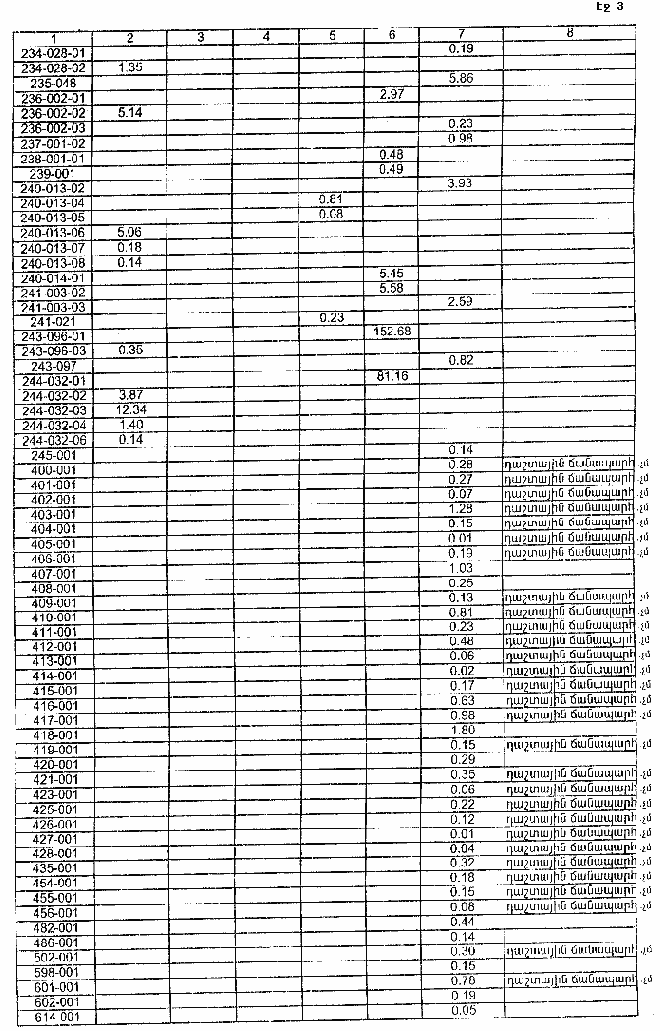 Էջ 3
1 2 3 4 5 6 7 8
234-028-01 0.19
234-028-02 1.35
235-048 5.86
236-002-01 2.97
236-002-02 5.14
236-002-03 0.23
237-001-02 0.98
238-001-01 0.48
239-001 0.49
240-013-02 3.93
240-013-04 0.81
240-013-05 0.08
240-013-06 5.06
240-013-07 0.18
240-013-08 0.14
240-014-01 5.45
241-003-02 5.58
241-003-03 2.59
241-021 0.23
243-096-01 152.68
243-096-03 0.35
243-097 0.82
244-032-01 81.16
244-032-02 3.87
244-032-03 12.34
244-032-04 1.40
244-032-06 0.14
245-001 0.14
400-001 0.28 դաշտային ճանապարհ .չմ
401-001 0.27 դաշտային ճանապարհ .չմ
402-001 0.07 դաշտային ճանապարհ .չմ
403-001 1.28 դաշտային ճանապարհ .չմ
404-001 0.15 դաշտային ճանապարհ .չմ
405-001 0.01 դաշտային ճանապարհ .չմ
406-001 0.19 դաշտային ճանապարհ .չմ
407-001 1.03
408-001 0.25
409-001 0.13 դաշտային ճանապարհ .չմ
410-001 0.81 դաշտային ճանապարհ .չմ
411-001 0.23 դաշտային ճանապարհ .չմ
412-001 0.48 դաշտային ճանապարհ .չմ
413-001 0.06 դաշտային ճանապարհ .չմ
414-001 0.02 դաշտային ճանապարհ .չմ
415-001 0.17 դաշտային ճանապարհ .չմ
416-001 0.63 դաշտային ճանապարհ .չմ
417-001 0.98 դաշտային ճանապարհ .չմ
418-001 1.80
419-001 0.15 դաշտային ճանապարհ .չմ
420-001 0.29
421-001 0.35 դաշտային ճանապարհ .չմ
423-001 0.06 դաշտային ճանապարհ .չմ
425-001 0.22 դաշտային ճանապարհ .չմ
426-001 0.12 դաշտային ճանապարհ .չմ
427-001 0.01 դաշտային ճանապարհ .չմ
428-001 0.04 դաշտային ճանապարհ .չմ
435-001 0.32 դաշտային ճանապարհ .չմ
454-001 0.18 դաշտային ճանապարհ .չմ
455-001 0.15 դաշտային ճանապարհ .չմ
456-001 0.08 դաշտային ճանապարհ .չմ
482-001 0.44
486-001 0.14
502-001 0.30 դաշտային ճանապարհ .չմ
598-001 0.15
601-001 0.70 դաշտային ճանապարհ .չմ
602-001 0.19
614-001 0.05